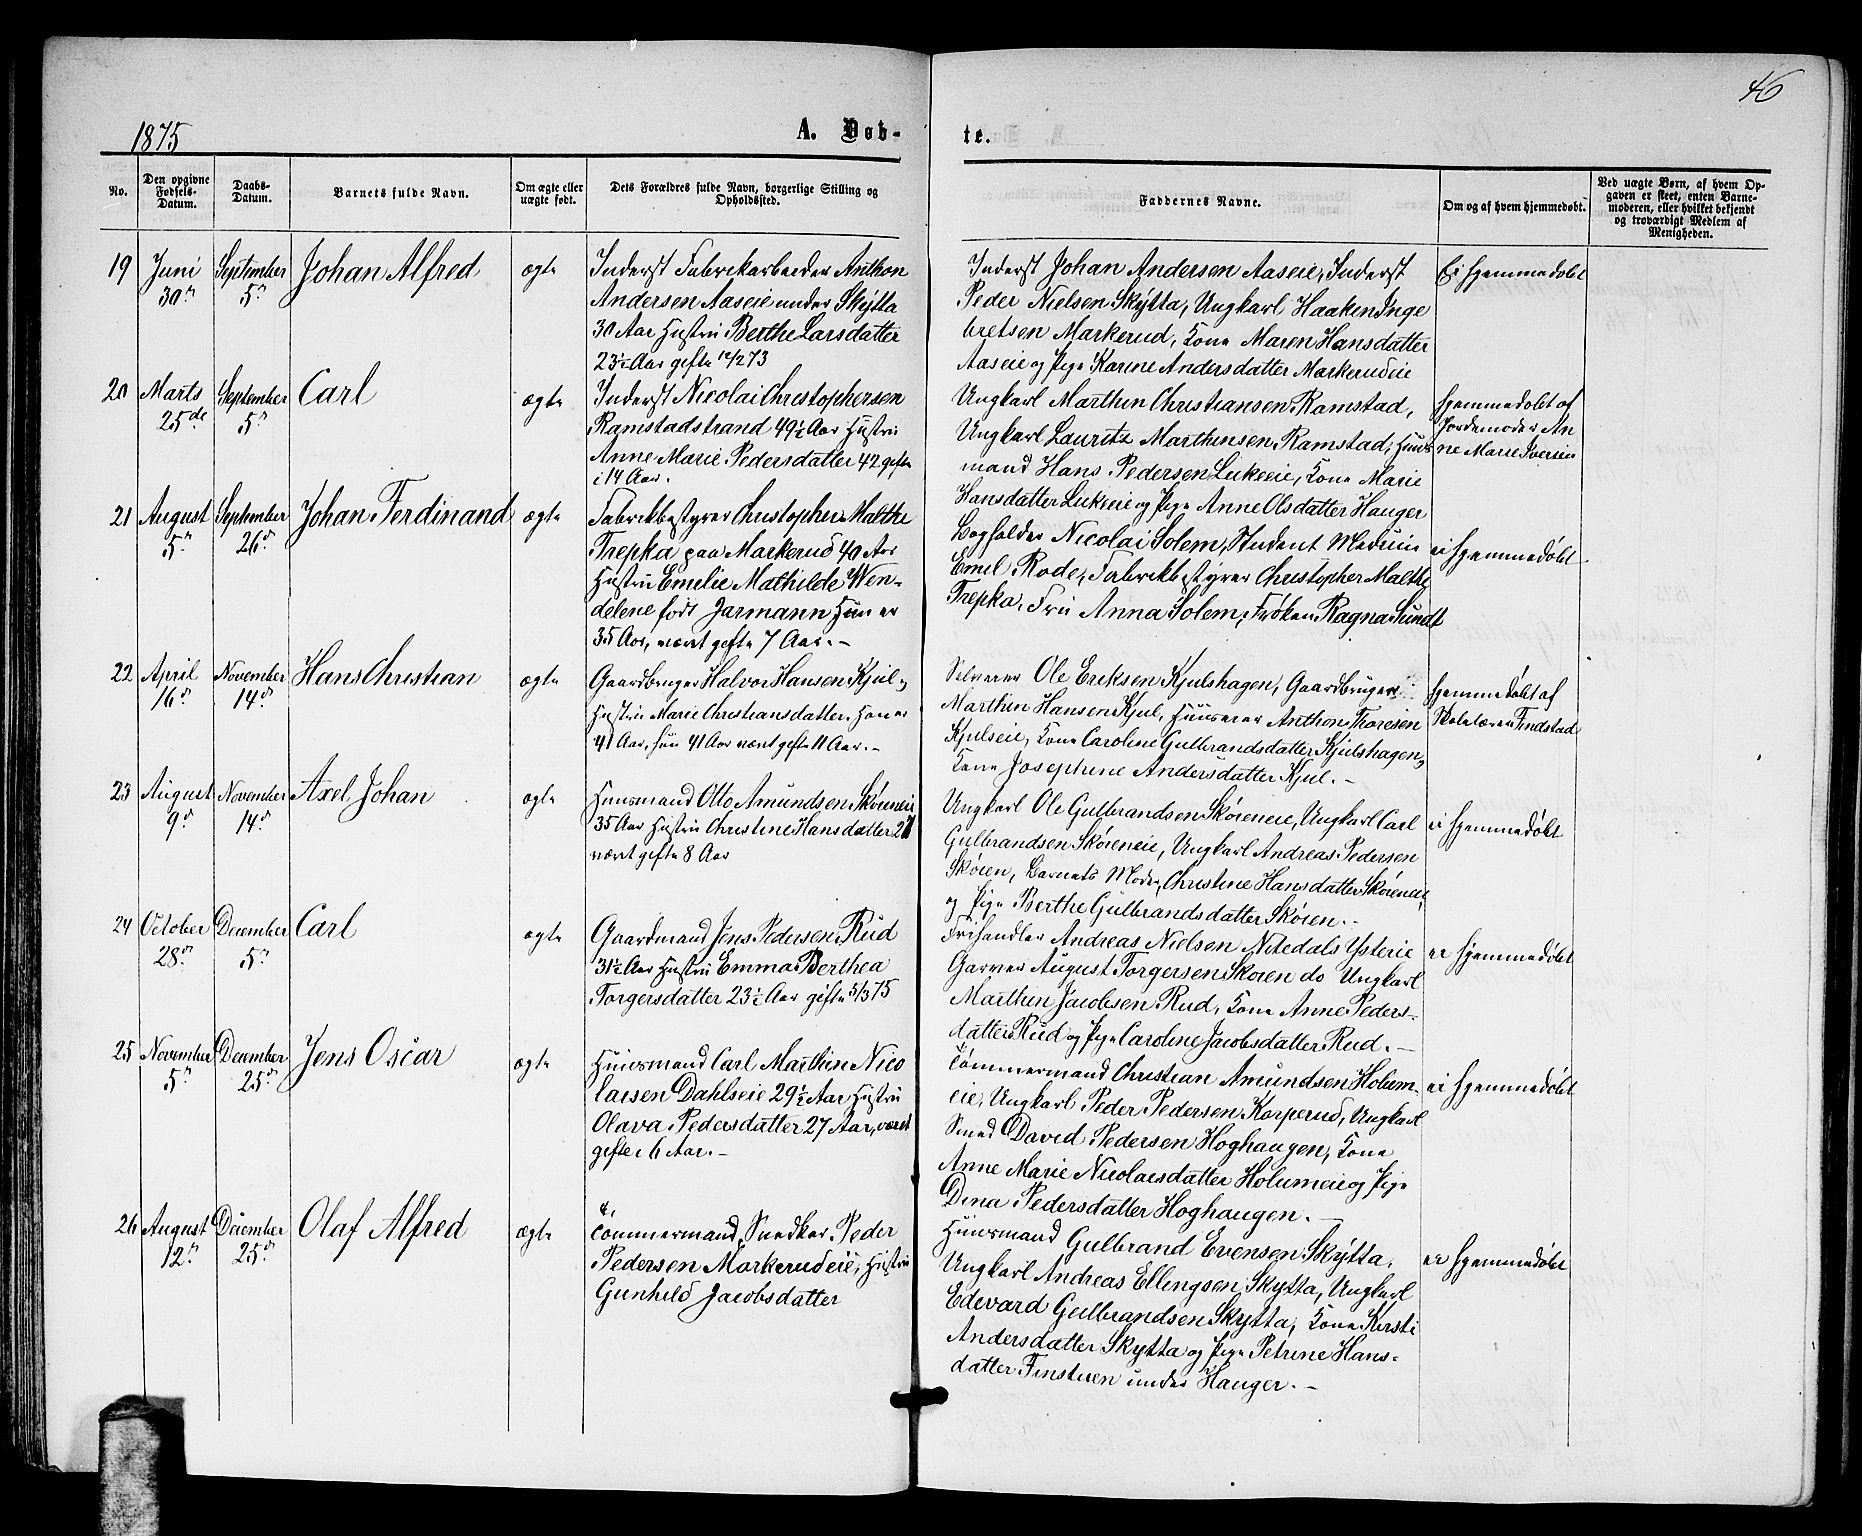 46
1875
A. Døb-
te.
No.
Den opgivne Fødsels-Datum.
Daabs-Datum.
Barnets fulde Navn.
Om ægte eller uægte født.
Dets Forældres fulde Navn, borgerlige Stilling og Opholdssted.
Faddernes Navne.
Om og af hvem hjemmedøbt.
Ved uægte Børn, af hvem Op-
gaven er skeet, enten Barne-
moderen, eller hvilket bekjendt
og troværdigt Medlem af
Menigheden.
19
Juni
30te
September
5te
Johan Alfred
ægte
Inderst Fabrikarbeider Anthon
Andersen Aaseie under Skÿtta
30 Aar Hustru Berthe Larsdatter
23½ Aar gifte 12/2 73
Inderst Johan Andersen Aaseie, Inderst
Peder Nielsen Skÿtta, Ungkarl Haaken Inge
bretsen Markerud, Kone Maren Hansdatter
Aaseie og Pige Karine Andersdatter Markerudeie
Ei hjemmedøbt
20
Marts
25de
September
5te
Carl
ægte
Inderst Nicolai Christophersen
Ramstadstrand 49½ Aar Hustru
Anne Marie Pedersdatter 42 gifte
i 14 Aar.
Ungkarl Marthin Christiansen Ramstad,
Ungkarl Lauritz Marthinsen Ramstad, Huus
mand Hans Pedersen Lukeeie, Kone Marie
Hansdatter Lukeeie og Pige Anne Olsdatter Hauger
Hjemmedøbt af
Jordemoder An
ne Marie Iversen
21
August
5te
September
26de
Johan Ferdinand
ægte
Fabrikbestyrer Christopher Malthe
Trepka paa Markerud 40 Aar
Hustru Emelie Mathilde Wen-
delene født Jarmann Hun er
35 Aar, været gifte 7 Aar.-
Bogholder Nicolai Solem, Student Medicin
Emil Rode, Fabrikbestyrer Christopher Malthe
Trepka, Fru Anna Solem, Frøken Ragna Sundt
ei hjemmedøbt
22
April
16de
November
14de
Hans Christian
ægte
Gaardbruger Halvor Hansen Kjul,
Hustru Marie Christiansdatter. Han er
41 Aar, hun 41 Aar været gifte 11 Aar.-
Selveier Ole Eriksen Kjulshagen, Gaardbruger
Marthin Hansen Kjul, Huuseier Anthon Thoresen
Kjulseie, Kone Caroline Gulbrandsdatter Kjulshagen,
Kone Josephine Andersdatter Kjul.-
hjemmedøbt af
Skolelærer Findstad
23
August
9de
November
14de
Axel Johan
ægte
Huusmand Otto Amundsen Skøieneie
35 Aar Hustru Christine Hansdatter
været gifte 8 Aar
Ungkarl Ole Gulbrandsen Skøieneie, Ungkarl Carl
Gulbrandsen Skøieneie, Ungkarl Andreas Pedersen
Skøien, Barnets Moder, Christine Hansdatter Skøieneie,
og Pige Berthe Gulbrandsdatter Skøien.-
ei hjemmedøbt
24
October
28de
December
5te
Carl
ægte
Gaardmand Jens Pedersen Rud
31½ Aar Hustru Emma Berthea
Torgersdatter 23½ Aar gifte 5/3 75
Frihandler Andreas Nielsen Nitedals Ysterie
Garver August Torgersen Skøien do Ungkarl
Marthin Jacobsen Rud, Kone Anne Peders-
datter Rud og Pige Caroline Jacobsdatter Rud.-
ei hjemmedøbt
25
November
5te
December
25de
Jens Oscar
ægte
Huusmand Carl Marthin Nico
laisen Dahlseie 29½ Aar Hustru
Olava Pedersdatter 27 Aar, været
gifte i 6 Aar.-
Tømmermand Christian Amundsen Holum-
eie, Ungkarl Peder Pedersen Korperud, Ungkarl
Smed David Pedersen Hoghaugen, Kone
Anne Marie Nicolaisdatter Holumeie og Pige
Dina Pedersdatter Hoghaugen.-
ei hjemmedøbt
26
August
12te
December
25de
Olaf Alfred
ægte
Tømmermand, Snedker Peder
Pedersen Markerudeie, Hustru
Gunhild Jacobsdatter
Huusmand Gulbrand Evensen Skÿtta,
Ungkarl Andreas Ellingsen Skytta, Ungkarl
Edevard Gulbrandsen Skytta, Kone Kirsti
Andersdatter Skytta og Pige Petrine Hans-
datter Finstuen under Hauger.-
ei hjemmedøbt